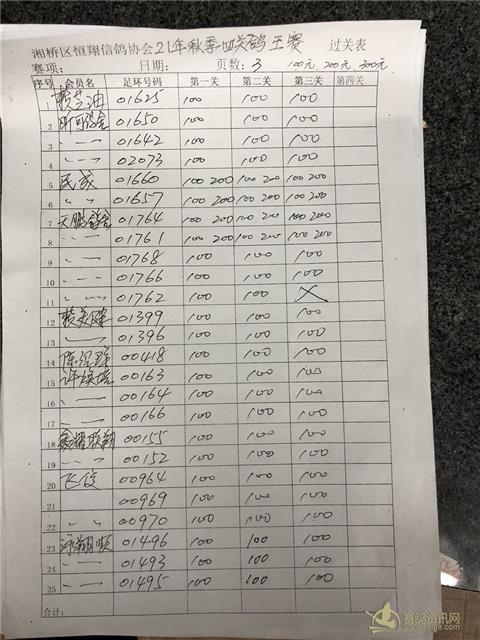 湘桥区恒翔信鸽协会21年秋季四关鸽王赛 过关表
赛项: 日期: 页数: 3 100元, 200元, 300元
序号 会员名 足环号码 第一关 第二关 第三关 第四关
1 01625 100 100 100
2 01650 100 100 100
3 〃 一 01642 100 100 100
4 〃 一 02073 100 100 100
5 民家 01660 100 200 100 200 100 200
6 〃 〃 01657 100 200 100 200 100 200
7 天鹏鸽舍 01764 100 200 100 200 100 200
8 〃 一 01761 100 200 100 200 100 200
9 〃 一 01768 100 100 100
10 〃 一 01766 100 100 100
11 〃 一 01762 100 100 X
12 01399 100 100 100
13 〃 一 01396 100 100 100
14 00418 100 100 100
15 00163 100 100 100
16 〃 一 00164 100 100 100
17 〃 一 00166 100 100 100
18 鑫耀联翔 00155 100 100 100
19 〃 〃 00152 100 100 100
20 飞俊 00964 100 100 100
21 00969 100 100 100
22 〃 〃 00970 100 100 100
23 泳翔顺 01496 100 100 100
24 〃 一 01493 100 100 100
25 〃 一 01495 100 100 100
合计:
赛鸽资讯网